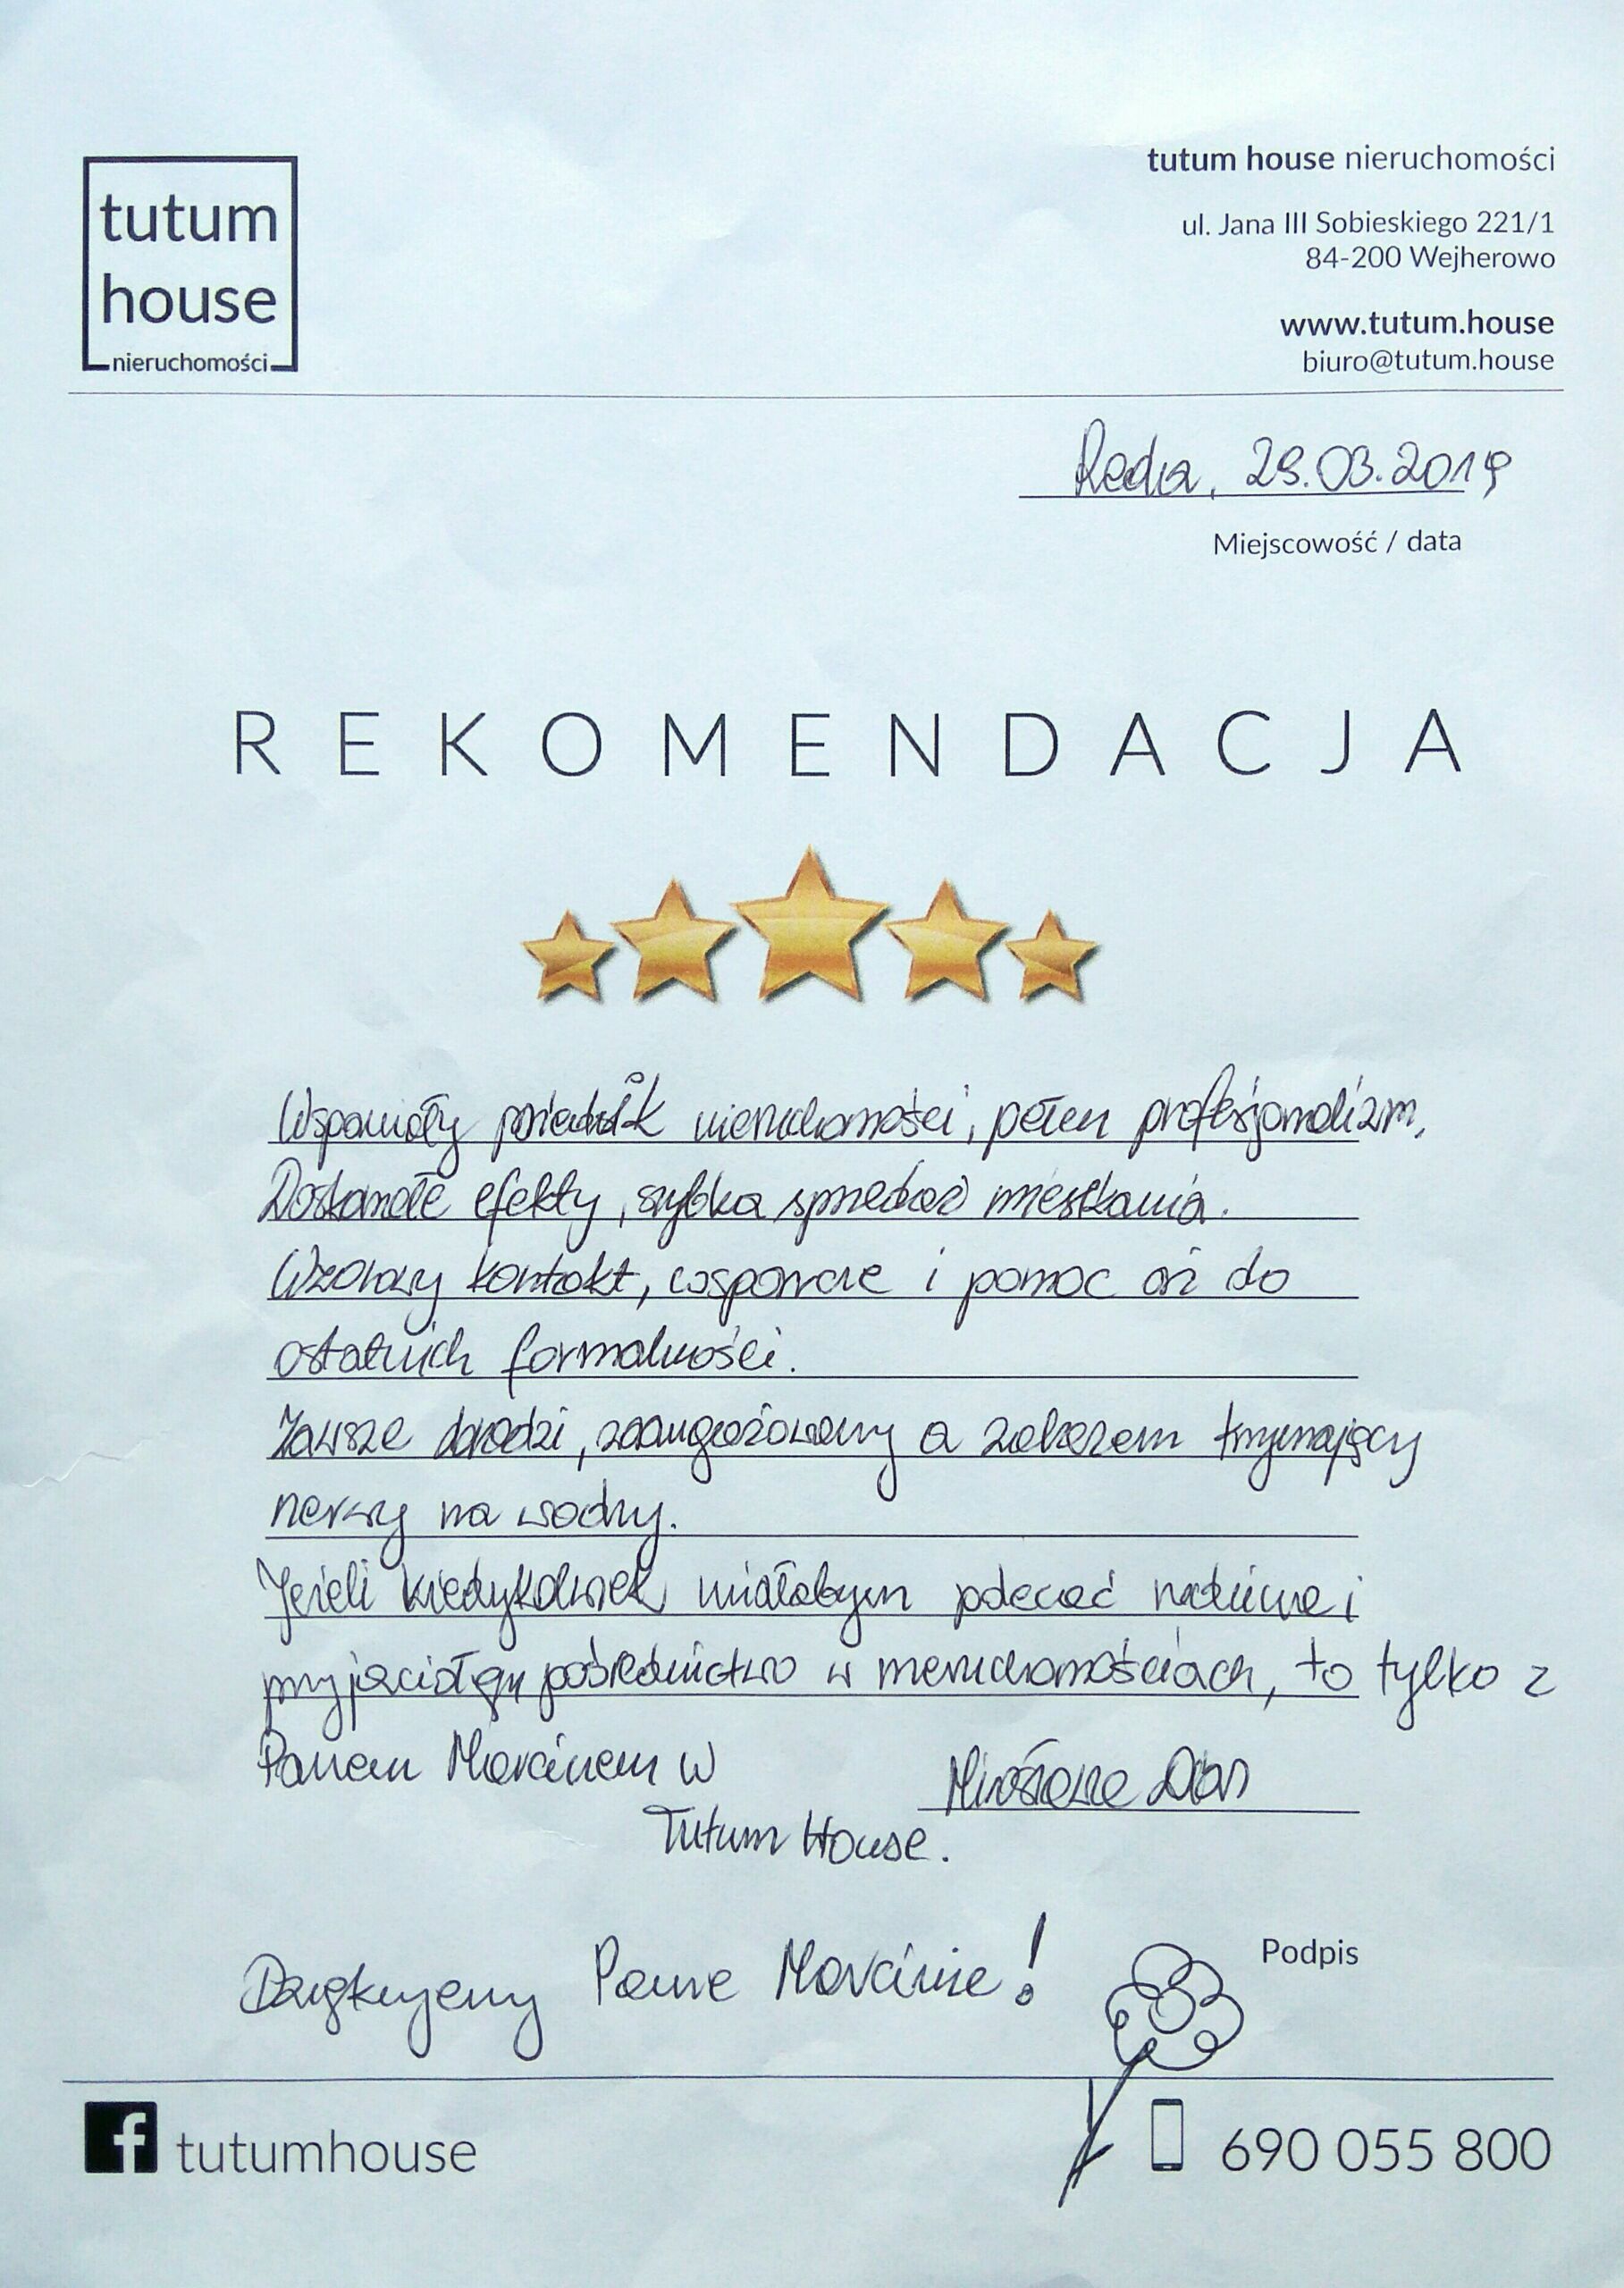 tutum
house
nieruchomości
tutum house nieruchomości
ul. Jana III Sobieskiego 221/1
84-200 Wejherowo
www.tutum.house
biuro@tutum.house
Reda, 29.03.2019
Miejscowość / data
REKOMENDACJA
Wspaniały nieruchomości, pełen profesjonalizm,
Doskonałe efekty, szybka sprzedaż mieszkania.
Wzorowy kontakt, wsparcie i pomoc aż do
ostatnich formalności.
Zawsze doradzi, zaangażowany a zarazem trzymający
nerwy na wodzy.
Jeżeli kiedykolwiek miałabym polecać rodzinie i
przyjaciołom pośrednictwo w nieruchomościach, to tylko z
Panem Marcinem w
Tutum House.
Dziękujemy Panie Marcinie!
Podpis
tutumhouse
690 055 800